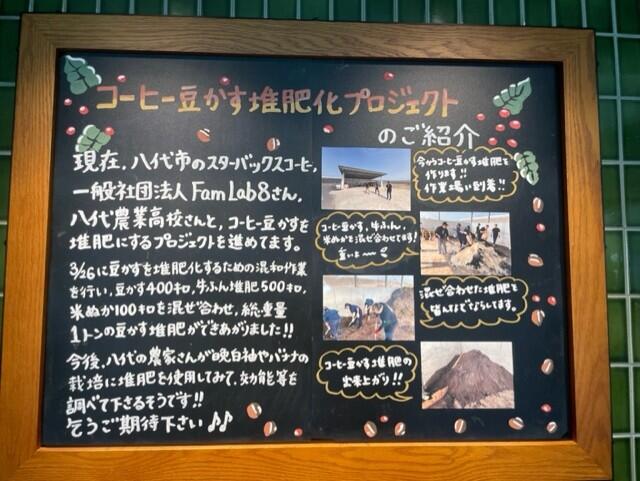 コーヒー豆かす堆肥化プロジェクト
のご紹介
現在、八代市のスターバックスコーヒー、
一般社団法人 Fam Lab8さん、
八代農業高校さんと、コーヒー豆かすを
堆肥にするプロジェクトを進めてます。
3/26に豆かすを堆肥化するための混和作業
を行い、豆かす400キロ、牛ふん堆肥500キロ、
米ぬか100キロを混ぜ合わせ、総重量
1トンの豆かす堆肥ができあがりました!!
今後、八代の農家さんが晩白柚やバナナの
栽培に堆肥を使用してみて、効能等を
調べて下さるそうです!!
乞うご期待下さい♪♪
今からコーヒー豆かす堆肥を
作ります!!
作業場に到着!!
コーヒー豆かす、牛ふん、
米ぬかを混ぜ合わせてます!
重いよ〜
混ぜ合わせた堆肥を
皆んなでならしてます。
コーヒー豆かす堆肥の
出来上がり!!